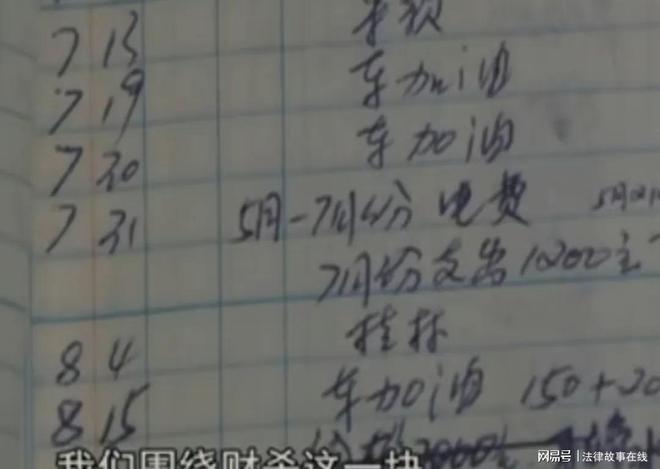 7 13
7 19 车加油
7 20 车加油
7 31 5月-7月份 电费 5月
7月份支出10200
8 4 桂林
8 15 车加油 150+20
我们围绕财杀这一块
网易号 | 法律故事在线